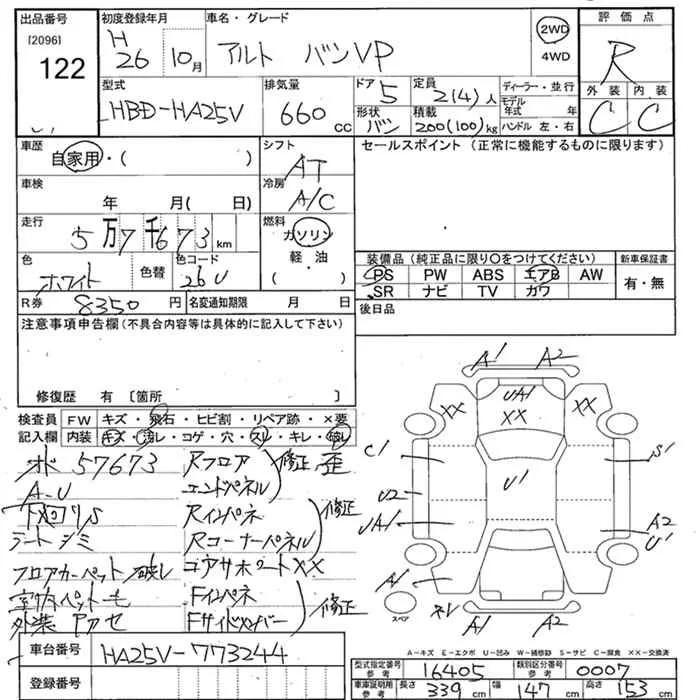 出品番号
[2096]
122
初度登録年月
H
26 10月
車名・グレード
アルト バンVP
2WD
4WD
評価点
R
外装 内装
C C
型式
HBD-HA25V
排気量
660 cc
ドア 5
形状 バン
定員 2(4)人
積載 200(100)kg
ディーラー・並行
モデル年式 年
ハンドル 左・右
車歴
自家用・( )
シフト
AT
車検
年 月( 日)
冷房
A/C
走行
5万7千673km
燃料
ガソリン
軽油
・
( )
色
ホワイト
色替
色コード
26U
R券 8350円
名変通知期限 月 日
セールスポイント(正常に機能するものに限ります)
装備品(純正品に限り○をつけてください)
新車保証書
PS PW ABS エアB AW
SR ナビ TV カワ
有・無
後日品
注意事項申告欄(不具合内容等は具体的に記入して下さい)
修復歴 有 [箇所 ]
検査員
記入欄
FW キズ・飛石・ヒビ割・リペア跡・×要
内装 キズ・汚レ・コゲ・穴・スレ・キレ・破レ
57673
A-U
下廻りS
シートシミ
フロアカーペット破レ
Rフロア
エンドパネル
修正 歪
Rインパネ
Rコーナーパネル
修正
コアサポートXX
Fインパネ
Fサイドメンバー
修正
外装
A1 A2
UA1
XX
XX
XX
C1
S1
U1
U2
UA1
A2
U1
A1
スペア
A1 A2
A-キズ E-エクボ U-凹み W-補修跡 S-サビ C-腐食 XX-交換済
車台番号 HA25V-773244
登録番号
型式指定番号 16405
類別区分番号 0007
車庫証明用参考 長さ 339cm 幅 147cm 高さ 153cm